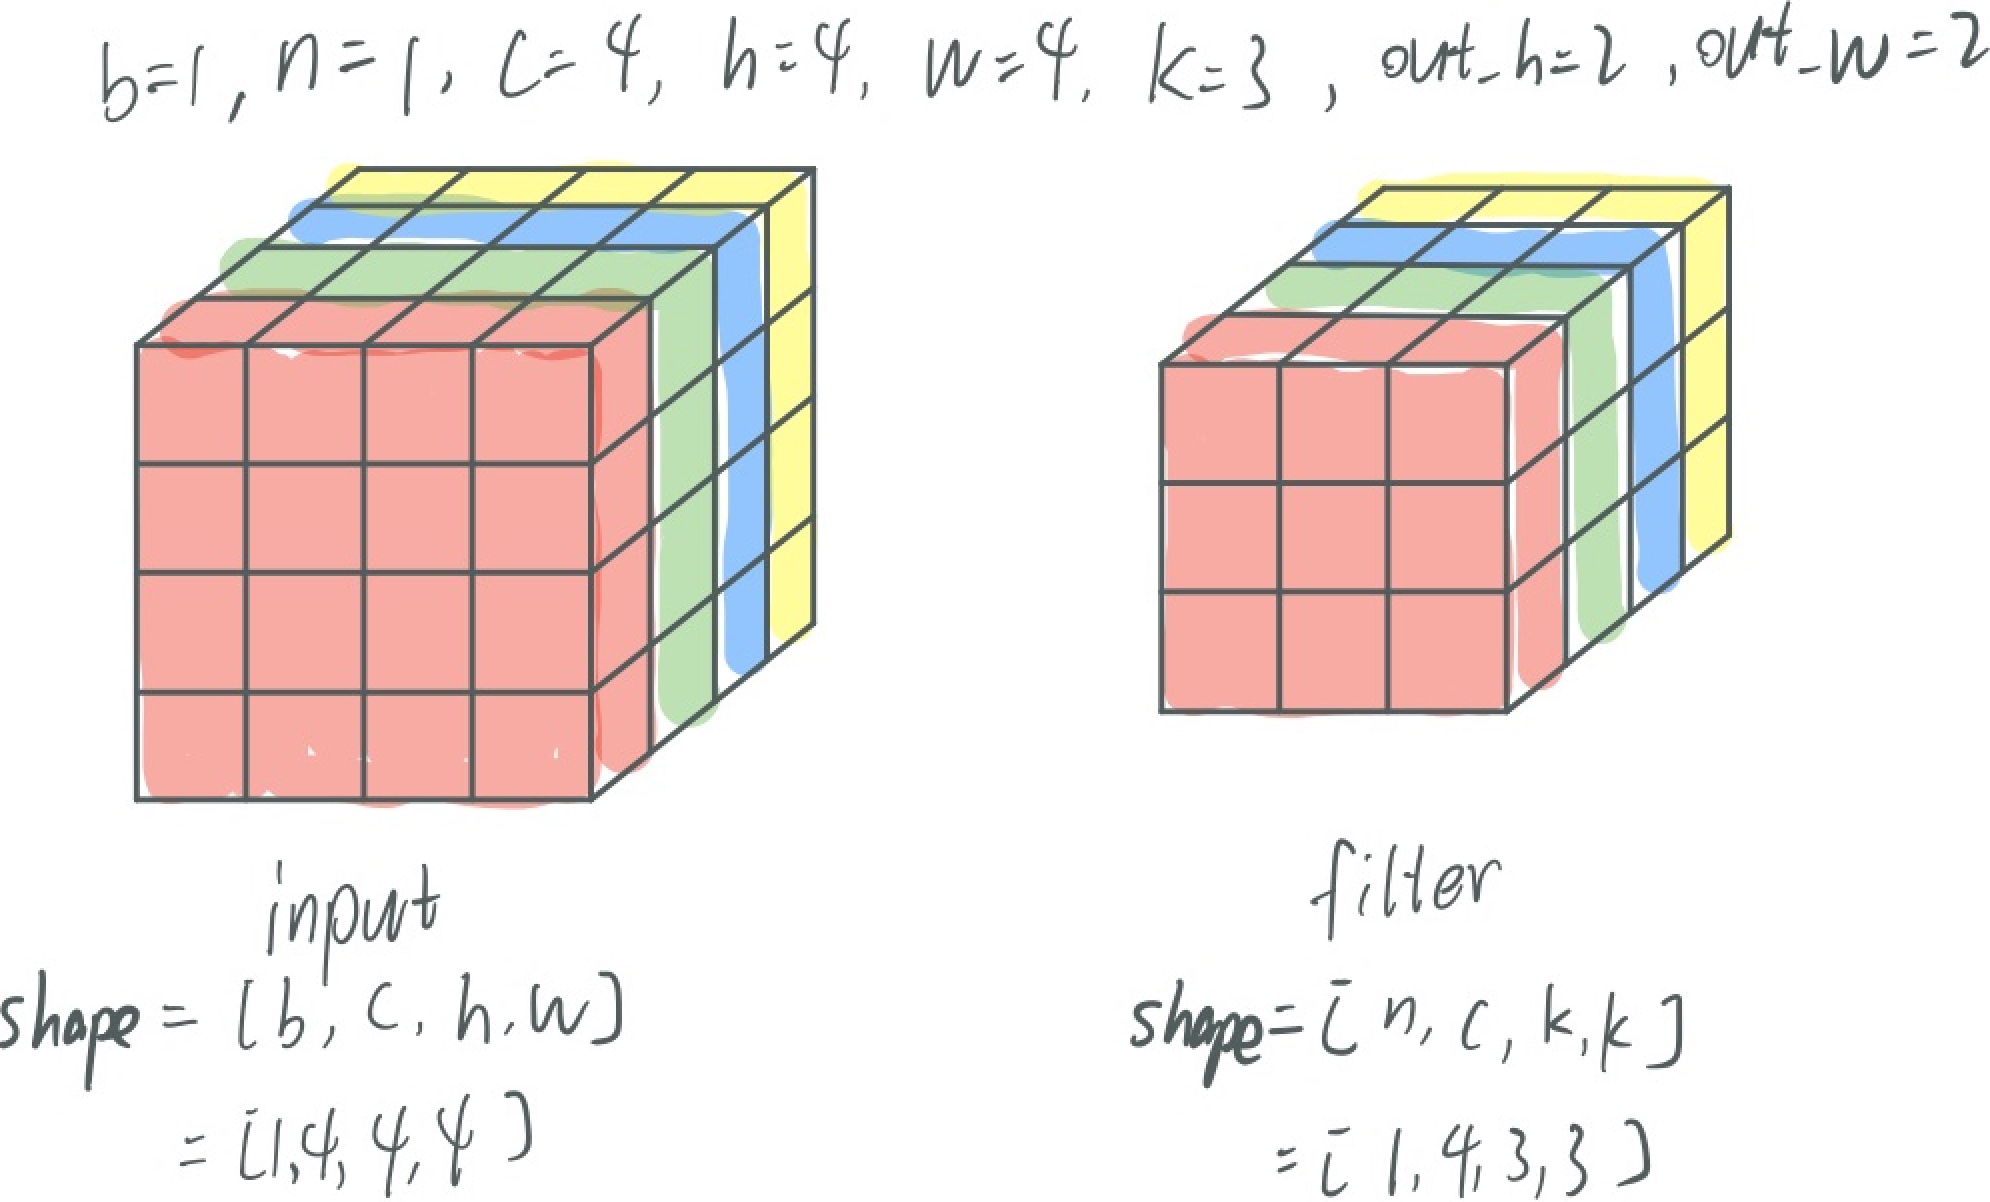 b=1, n=1, c=4, h=4, w=4, k=3, out_h=2, out_w=2
input
shape = [b, c, h, w]
= [1,4,4,4]
filter
shape = [n, c, k, k]
= [1,4,3,3]